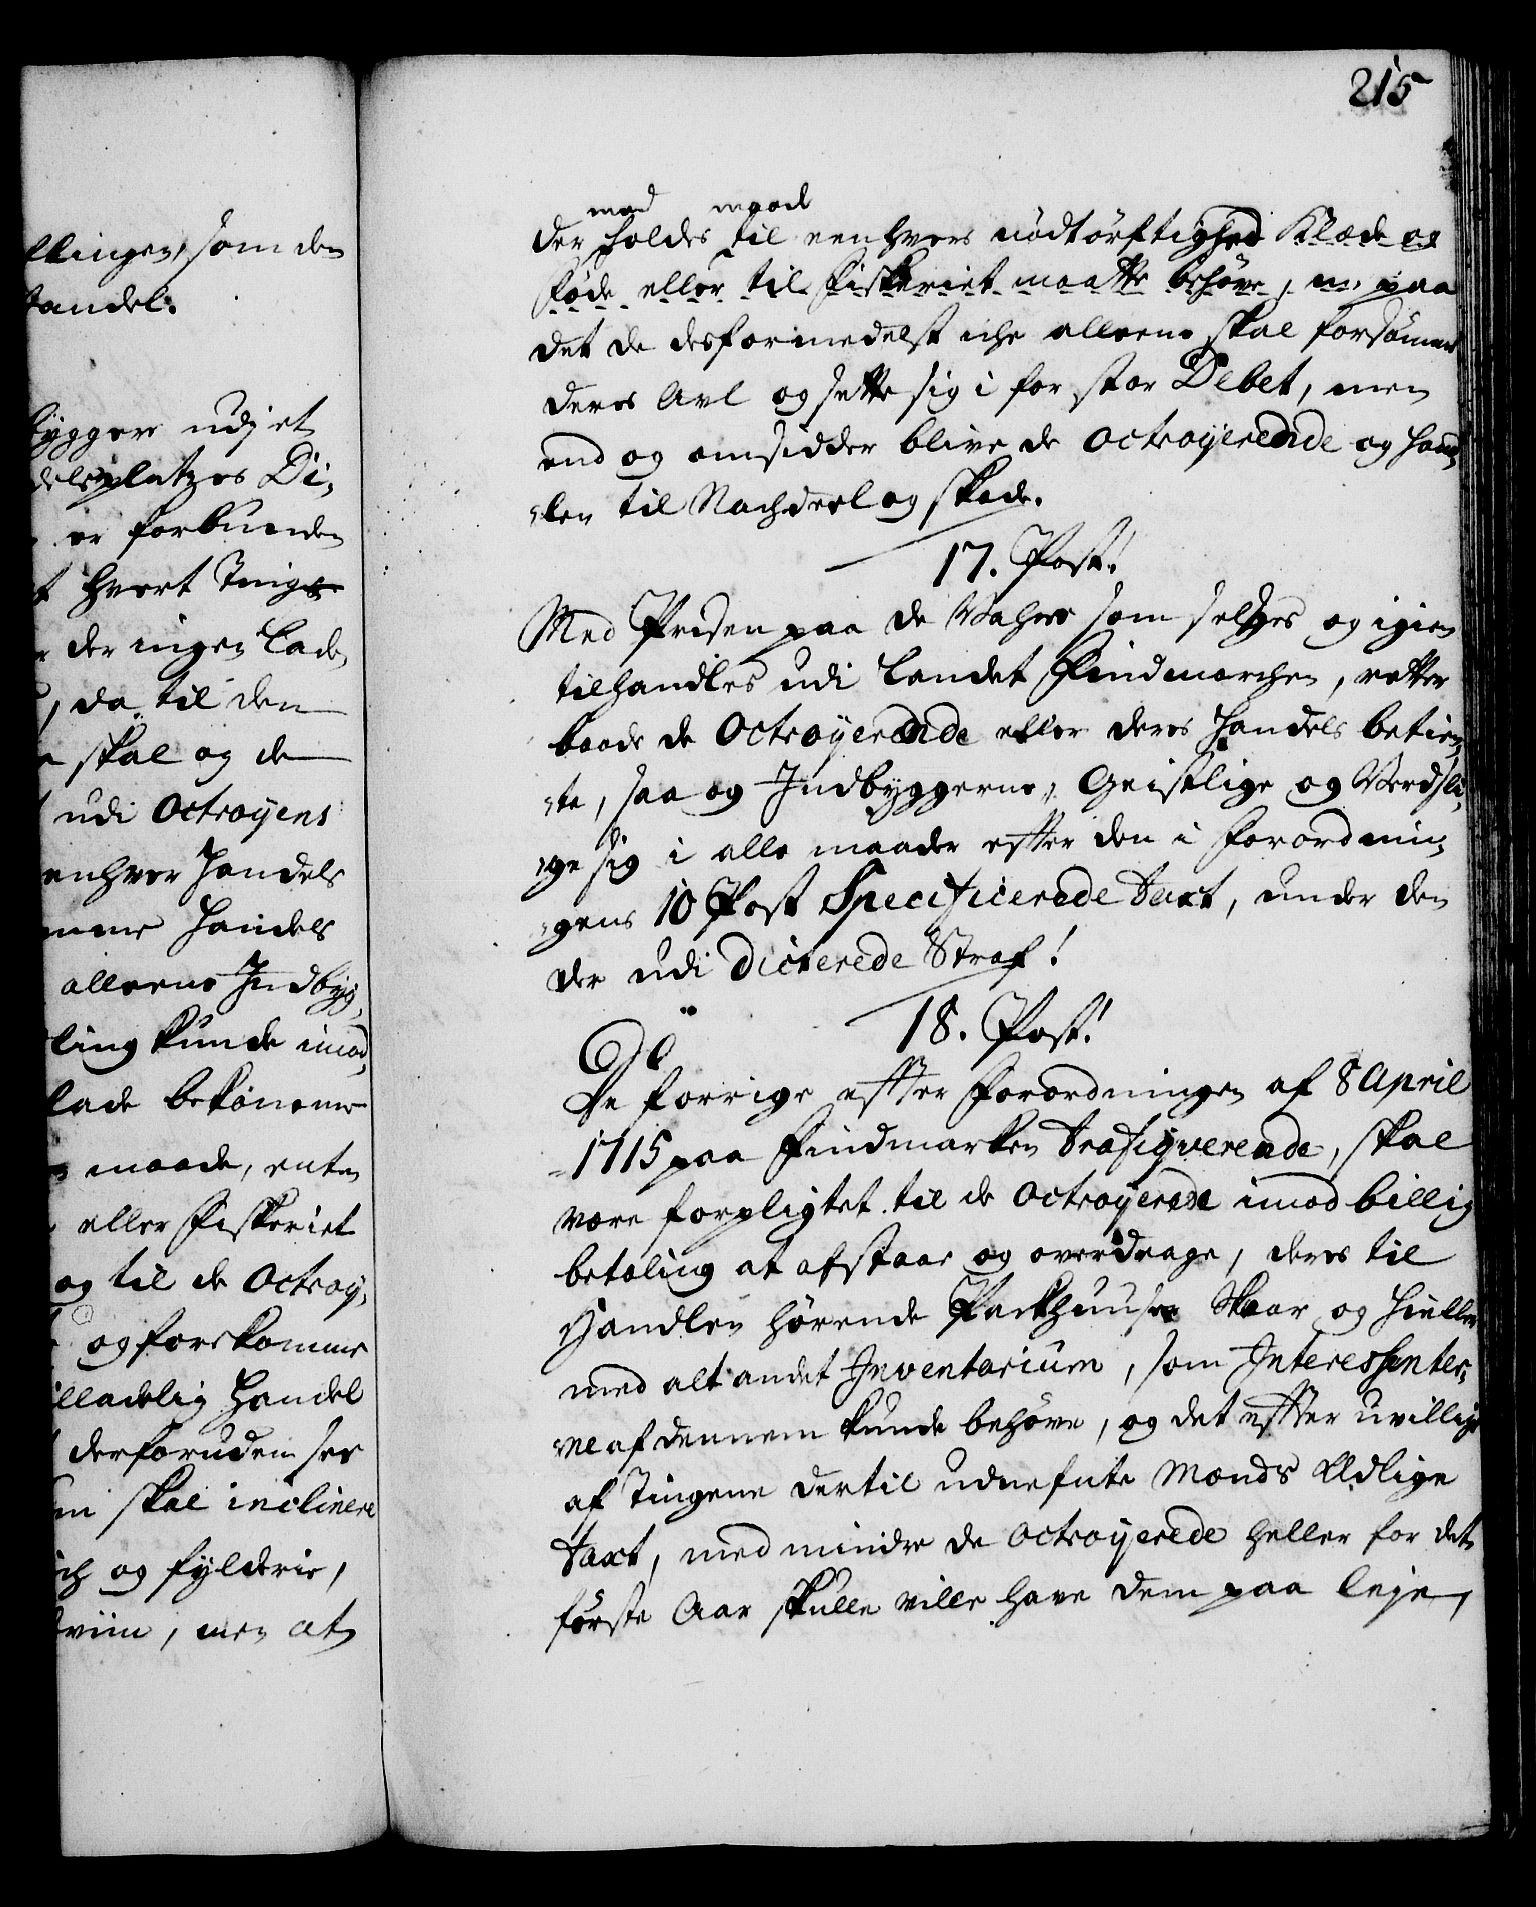 llingen, som den
Handel.
bygger udj et
delsplatzes Di-
er forbunden
t hvert Tings
der ingen Lade,
, da til den
skal og de
udi Octroyens
enhver Handels
mme Handels
alleene Indbyg,
ling kunde imod,
lade bekomme
maade, enten
eller fiskeriet
og til de Octroy,
og forekomme
illadelig Handel
derforuden sees
skal inclinere
ich og fylderie,
viin, men at
215
med maade
der holdes til eenhvers nödtörftighed Klæde og
föde eller til fiskeriet maatte behöve, m. paa
det de desformedelst iche alleene skal forsömme
deres Avl og sette sig i for stor Debet, men
end og omsidder blive de Octroyerende og Hand,
len til Nachdeel og skade.
17. Post.
Med Prisen paa de Vahrer som selges og igien
tilhandles udi Landet Findmarchen, retter
baade de Octroyerende eller deres Handels betien,
te, saa og Indbyggerne, Geistlige og Verdsli,
ge sig i alle maader efter den i Forordnin,
gens 10 Post Specificerede Taxt, under den
der udi dicterede Straf!
18. Post!
De forrige efter Forordningen af 8 April
1715 paa Findmarken Trafiqverende, skal
være forpligtet til de Octroyerede imod billig
betaling at afstaae og overdrage, deres til
Handlen hørende Packhuuser Skaar og Hieller
med alt andet Inventarium, som Interessenter,
ne af dennem kunde behöve, og det efter uvillige
af Tingene dertil udnefnte Mænds Edlige
Taxt, med mindre de Octroyerede heller for det
förste Aar skulle ville have dem paa leje,